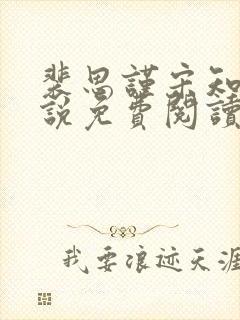 裴思謹宋知
說免費閱讀
我要浪迹天涯